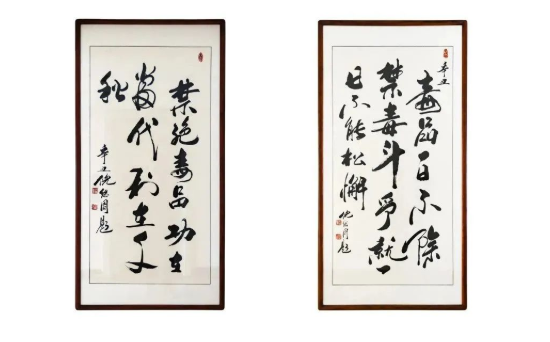 禁绝毒品功在
當代利在千
秋
辛丑倪题
辛丑
毒品一日不除
禁毒斗争就一
日不能松懈
倪题